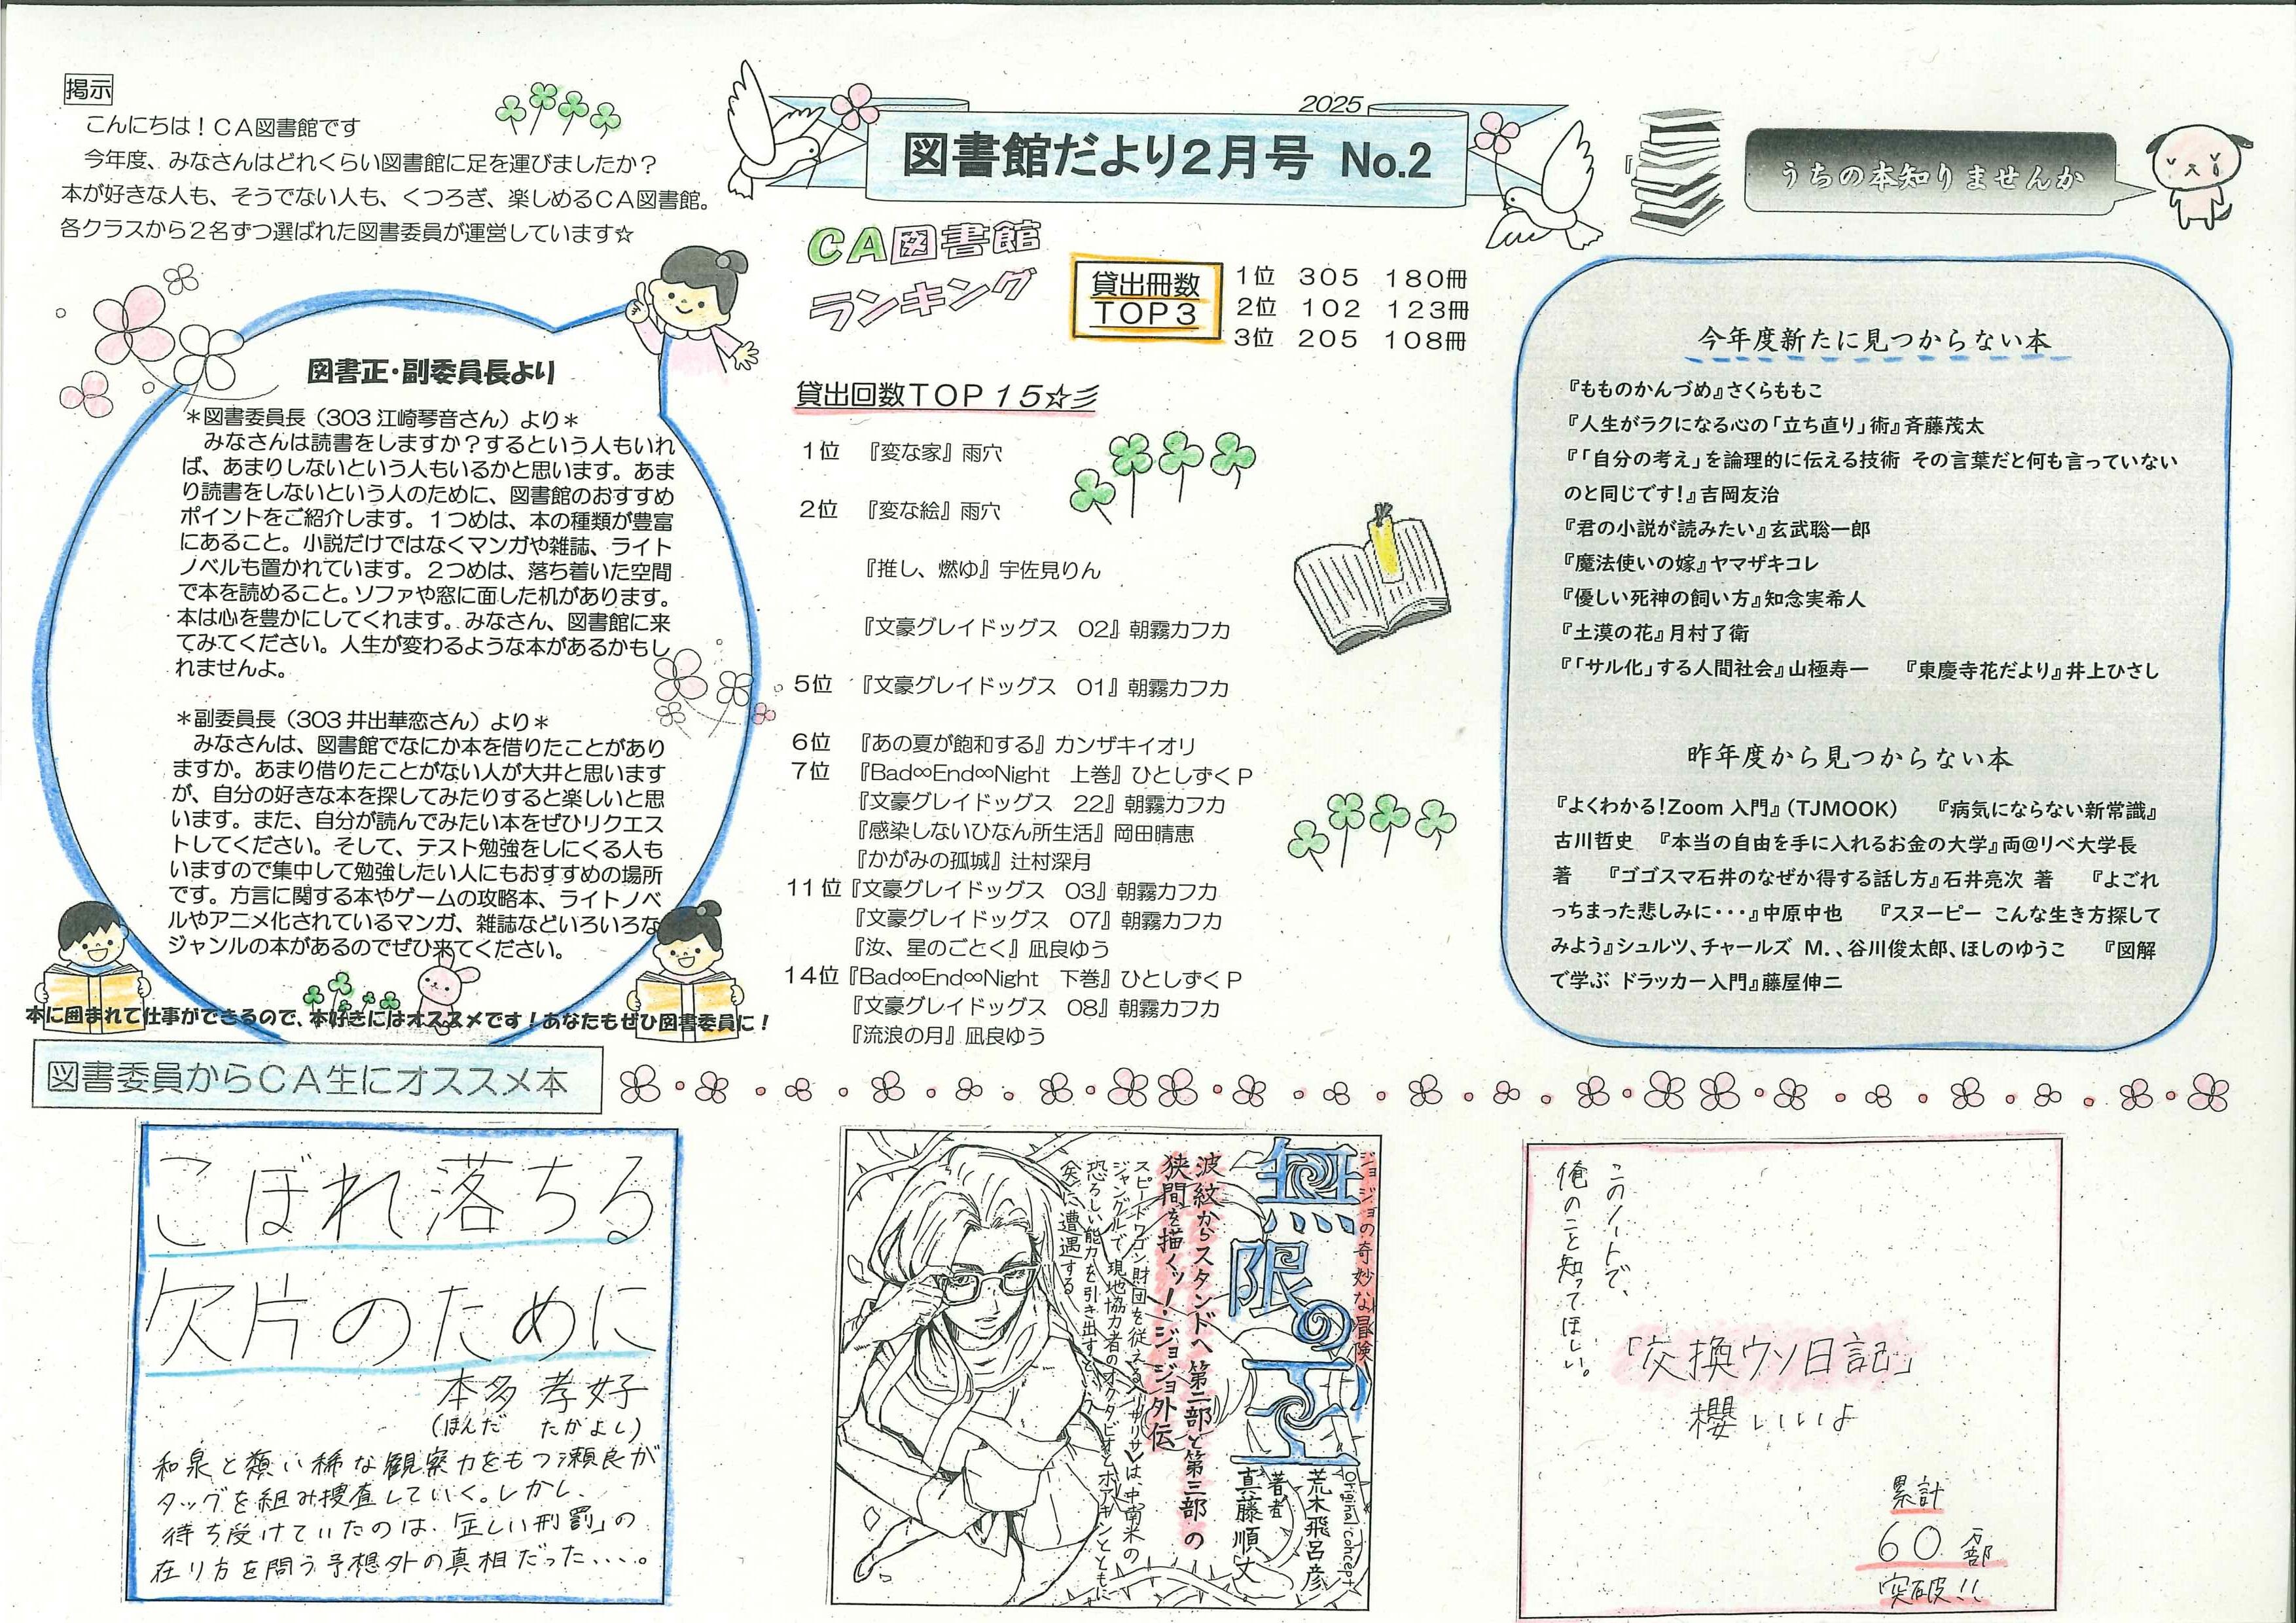 掲示
こんにちは！ＣＡ図書館です
今年度、みなさんはどれくらい図書館に足を運びましたか？
本が好きな人も、そうでない人も、くつろぎ、楽しめるＣＡ図書館。
各クラスから２名ずつ選ばれた図書委員が運営しています☆
図書正・副委員長より
＊図書委員長（303 江崎琴音さん）より＊
みなさんは読書をしますか？するという人もいれ
ば、あまりしないという人もいるかと思います。あま
り読書をしないという人のために、図書館のおすすめ
ポイントをご紹介します。１つめは、本の種類が豊富
にあること。小説だけではなくマンガや雑誌、ライト
ノベルも置かれています。２つめは、落ち着いた空間
で本を読めること。ソファや窓に面した机があります。
本は心を豊かにしてくれます。みなさん、図書館に来
てみてください。人生が変わるような本があるかもし
れませんよ。
＊副委員長（303 井出華恋さん）より＊
みなさんは、図書館でなにか本を借りたことがあり
ますか。あまり借りたことがない人が大井と思います
が、自分の好きな本を探してみたりすると楽しいと思
います。また、自分が読んでみたい本をぜひリクエス
トしてください。そして、テスト勉強をしにくる人も
いますので集中して勉強したい人にもおすすめの場所
です。方言に関する本やゲームの攻略本、ライトノベ
ルやアニメ化されているマンガ、雑誌などいろいろな
ジャンルの本があるのでぜひ来てください。
本に囲まれて仕事ができるので、本好きにはオススメです！あなたもぜひ図書委員に！
2025
図書館だより２月号 No.2
ＣＡ図書館
ランキング
貸出冊数
ＴＯＰ３
１位 ３０５ １８０冊
２位 １０２ １２３冊
３位 ２０５ １０８冊
貸出回数ＴＯＰ１５☆彡
１位 『変な家』雨穴
２位 『変な絵』雨穴
『推し、燃ゆ』宇佐見りん
『文豪グレイドッグス 02』朝霧カフカ
５位 『文豪グレイドッグス 01』朝霧カフカ
６位 『あの夏が飽和する』カンザキイオリ
７位 『Bad∞End∞Night 上巻』ひとしずくＰ
『文豪グレイドッグス 22』朝霧カフカ
『感染しないひなん所生活』岡田晴恵
『かがみの孤城』辻村深月
11位『文豪グレイドッグス 03』朝霧カフカ
『文豪グレイドッグス 07』朝霧カフカ
『汝、星のごとく』凪良ゆう
14位『Bad∞End∞Night 下巻』ひとしずくＰ
『文豪グレイドッグス 08』朝霧カフカ
『流浪の月』凪良ゆう
『
うちの本知りませんか
今年度新たに見つからない本
『もものかんづめ』さくらももこ
『人生がラクになる心の「立ち直り」術』斉藤茂太
『「自分の考え」を論理的に伝える技術 その言葉だと何も言っていない
のと同じです！』吉岡友治
『君の小説が読みたい』玄武聡一郎
『魔法使いの嫁』ヤマザキコレ
『優しい死神の飼い方』知念実希人
『土漠の花』月村了衛
『「サル化」する人間社会』山極寿一 『東慶寺花だより』井上ひさし
昨年度から見つからない本
『よくわかる！Zoom 入門』（TJMOOK） 『病気にならない新常識』
古川哲史 『本当の自由を手に入れるお金の大学』両＠リベ大学長
著 『ゴゴスマ石井のなぜか得する話し方』石井亮次 著 『よごれ
っちまった悲しみに・・・』中原中也 『スヌーピー こんな生き方探して
みよう』シュルツ、チャールズ M.、谷川俊太郎、ほしのゆうこ 『図解
で学ぶ ドラッカー入門』藤屋伸二
図書委員からＣＡ生にオススメ本
こぼれ落ちる
欠片のために
本多 孝好
（ほんだ たかよし）
和泉と類い稀な観察力をもつ瀬良が
タッグを組み捜査していく。しかし、
待ち受けていたのは、「正しい刑罰」の
在り方を問う予想外の真相だった、、、。
ジョジョの奇妙な冒険
無限の王
Original concept
荒木飛呂彦
著者
真藤順丈
波紋からスタンドへ 第二部と第三部の
狭間を描くッ！ジョジョ外伝
スピードワゴン財団を従えるリサリサは、中南米の
ジャングルで現地協力者のオクタビオとホアキンとともに
恐ろしい能力を引き出すという
〈矢〉に遭遇する
このノートで、
俺のこと知ってほしい。
「交換ウソ日記」
櫻いいよ
累計
60万部
突破!!